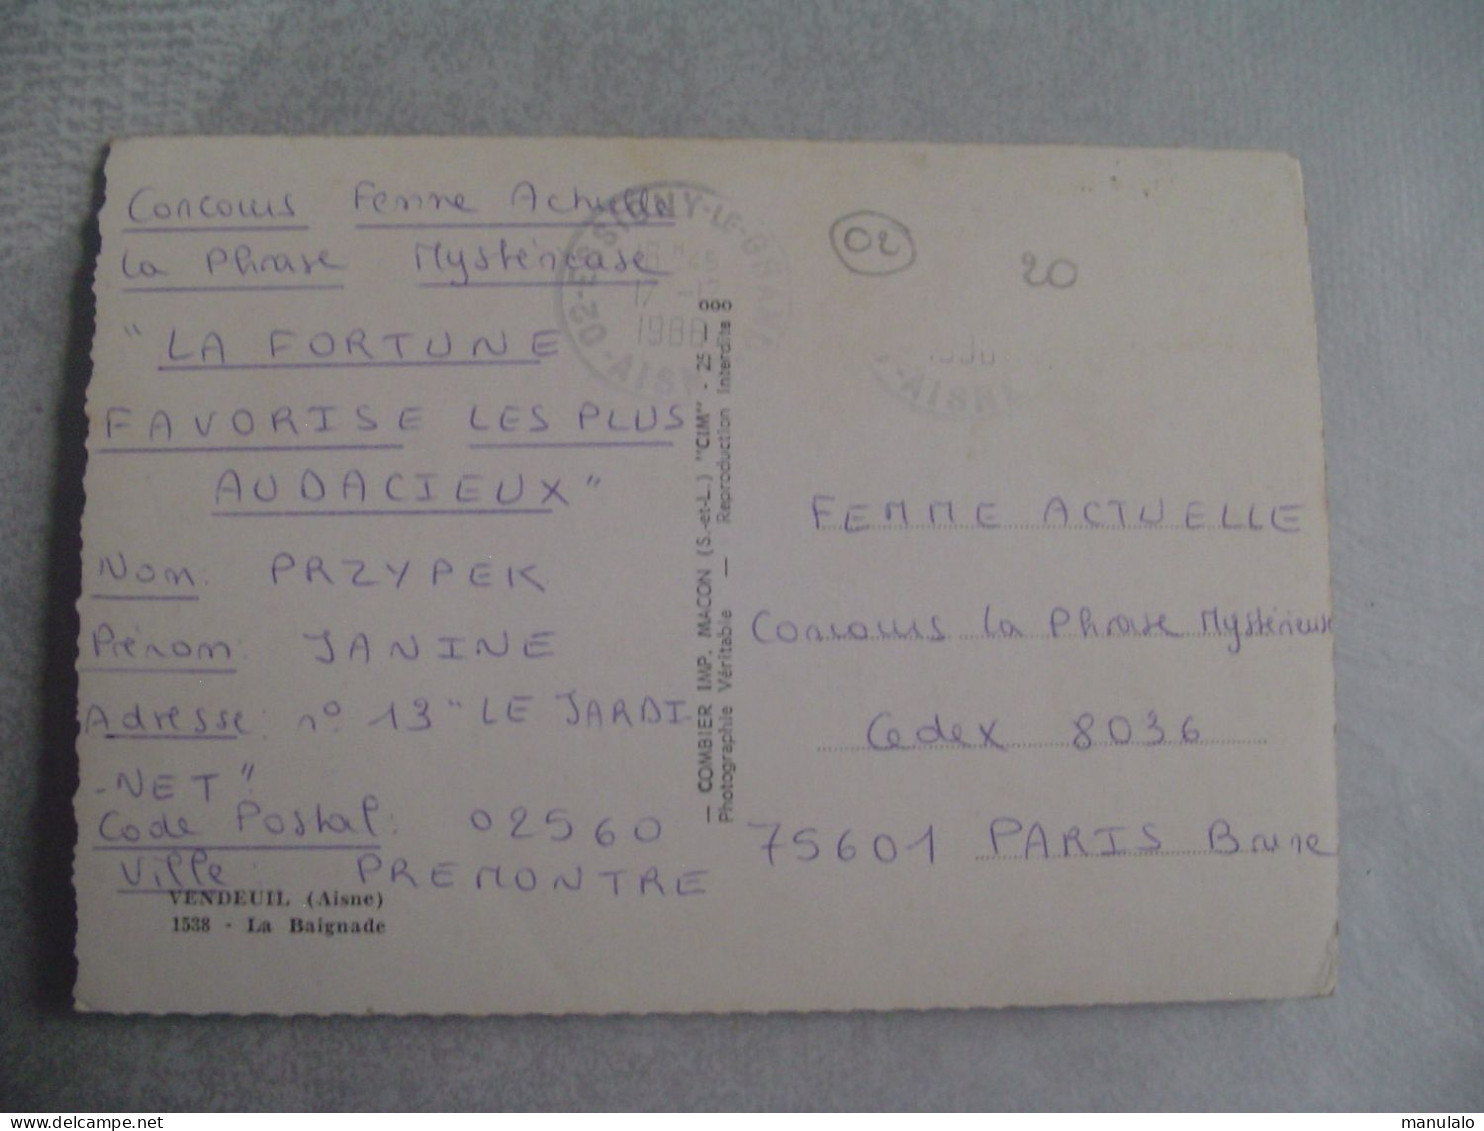 Concours Femme Actuelle
la Phrase Mystérieuse
"LA FORTUNE
FAVORISE LES PLUS
AUDACIEUX"
Nom: PRZYPEK
Prénom: JANINE
Adresse: n° 13 "LE JARDI
-NET"
Code Postal: 02560
Ville: PREMONTRE
VENDEUIL (Aisne)
1538 - La Baignade
— COMBIER IMP. MACON (S.-et-L.) "CIM" - 25 —
Photographie Véritable — Reproduction Interdite
02-ESSIGNY-LE-GRAND
17
1986
02-AISNE
-AISNE
02
20
FEMME ACTUELLE
Concours la Phrase Mystérieuse
Cedex 8036
75601 PARIS Brune
manulalo